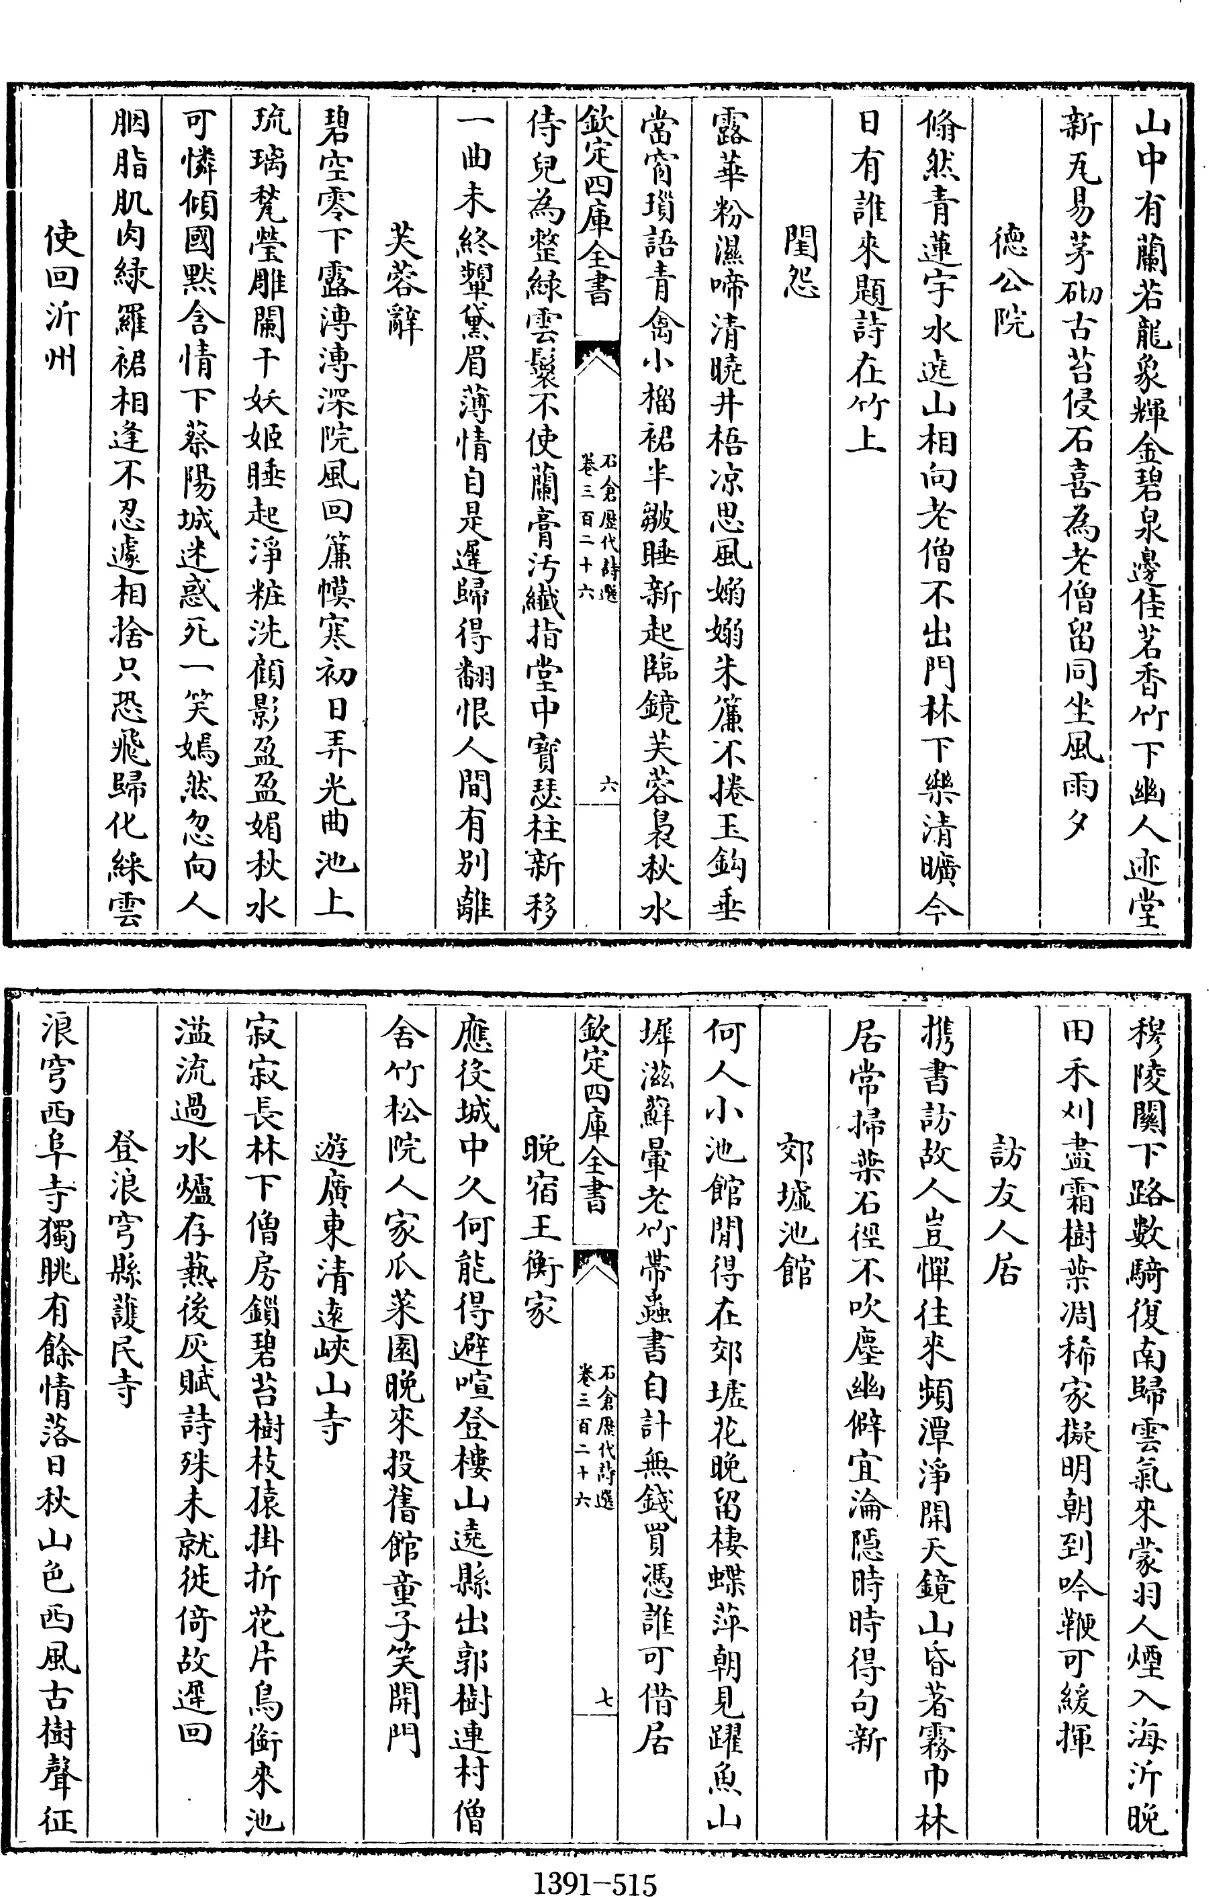 山中有蘭若龍象輝金碧泉邊佳茗香竹下幽人迹堂
新瓦易茅砌古苔侵石喜為老僧留同坐風雨夕
德公院
翛然青蓮宇水遶山相向老僧不出門林下樂清曠今
日有誰來題詩在竹上
閨怨
露華粉濕啼清曉井梧凉思風嫋嫋朱簾不捲玉鈎垂
當窗瑣語青禽小榴裙半皺睡新起臨鏡芙蓉裊秋水
欽定四庫全書
石倉歷代詩選
卷三百二十六
六
侍兒為整綠雲鬟不使蘭膏汚纖指堂中寳瑟柱新移
一曲未終顰黛眉薄情自是遲歸得翻恨人間有別離
芙蓉辭
碧空零下露漙漙深院風回簾幙寒初日弄光曲池上
琉璃甃瑩雕闌干妖姬睡起淨粧洗顧影盈盈媚秋水
可憐傾國黙含情下蔡陽城迷惑死一笑嫣然忽向人
胭脂肌肉緑羅裙相逢不忍遽相捨只恐飛歸化綵雲
使回沂州
穆陵關下路數騎復南歸雲氣來蒙羽人煙入海沂晚
田禾刈盡霜樹葉凋稀家擬明朝到吟鞭可緩揮
訪友人居
携書訪故人豈憚往來頻潭淨開天鏡山昏著霧巾林
居常掃葉石徑不吹塵幽僻宜淪隱時時得句新
郊墟池館
何人小池館閒得在郊墟花晚留棲蝶萍朝見躍魚山
墀滋蘚暈老竹帶蟲書自計無錢買憑誰可借居
欽定四庫全書
石倉歷代詩選
卷三百二十六
七
晚宿王衡家
應役城中久何能得避喧登樓山遶縣出郭樹連村僧
舍竹松院人家瓜菜園晚來投舊館童子笑開門
遊廣東清遠峽山寺
寂寂長林下僧房鎖碧苔樹枝猿掛折花片鳥銜來池
溢流過水爐存爇後灰賦詩殊未就徙倚故遲回
登浪穹縣護民寺
浪穹西阜寺獨眺有餘情落日秋山色西風古樹聲征
1391-515